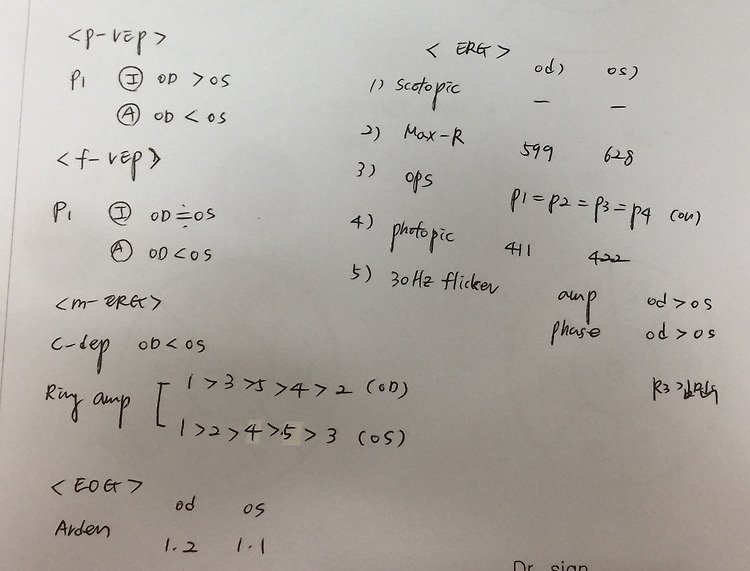 <p-VEP>
P1 Ⓘ OD > OS
Ⓐ OD < OS
<f-VEP>
P1 Ⓘ OD ≒ OS
Ⓐ OD < OS
<m-ERG>
C-dep OD < OS
Ring amp [ 1 > 3 > 5 > 4 > 2 (OD)
1 > 2 > 4 > 5 > 3 (OS)
<EOG>
od os
Arden 1.2 1.1
<ERG>
od) os)
1) Scotopic — —
2) Max-R 599 628
3) OPS P1 = P2 = P3 = P4 (ou)
4) photopic 411 422
5) 30Hz flicker amp od > os
phase od > os
P3 >
Dr. sign